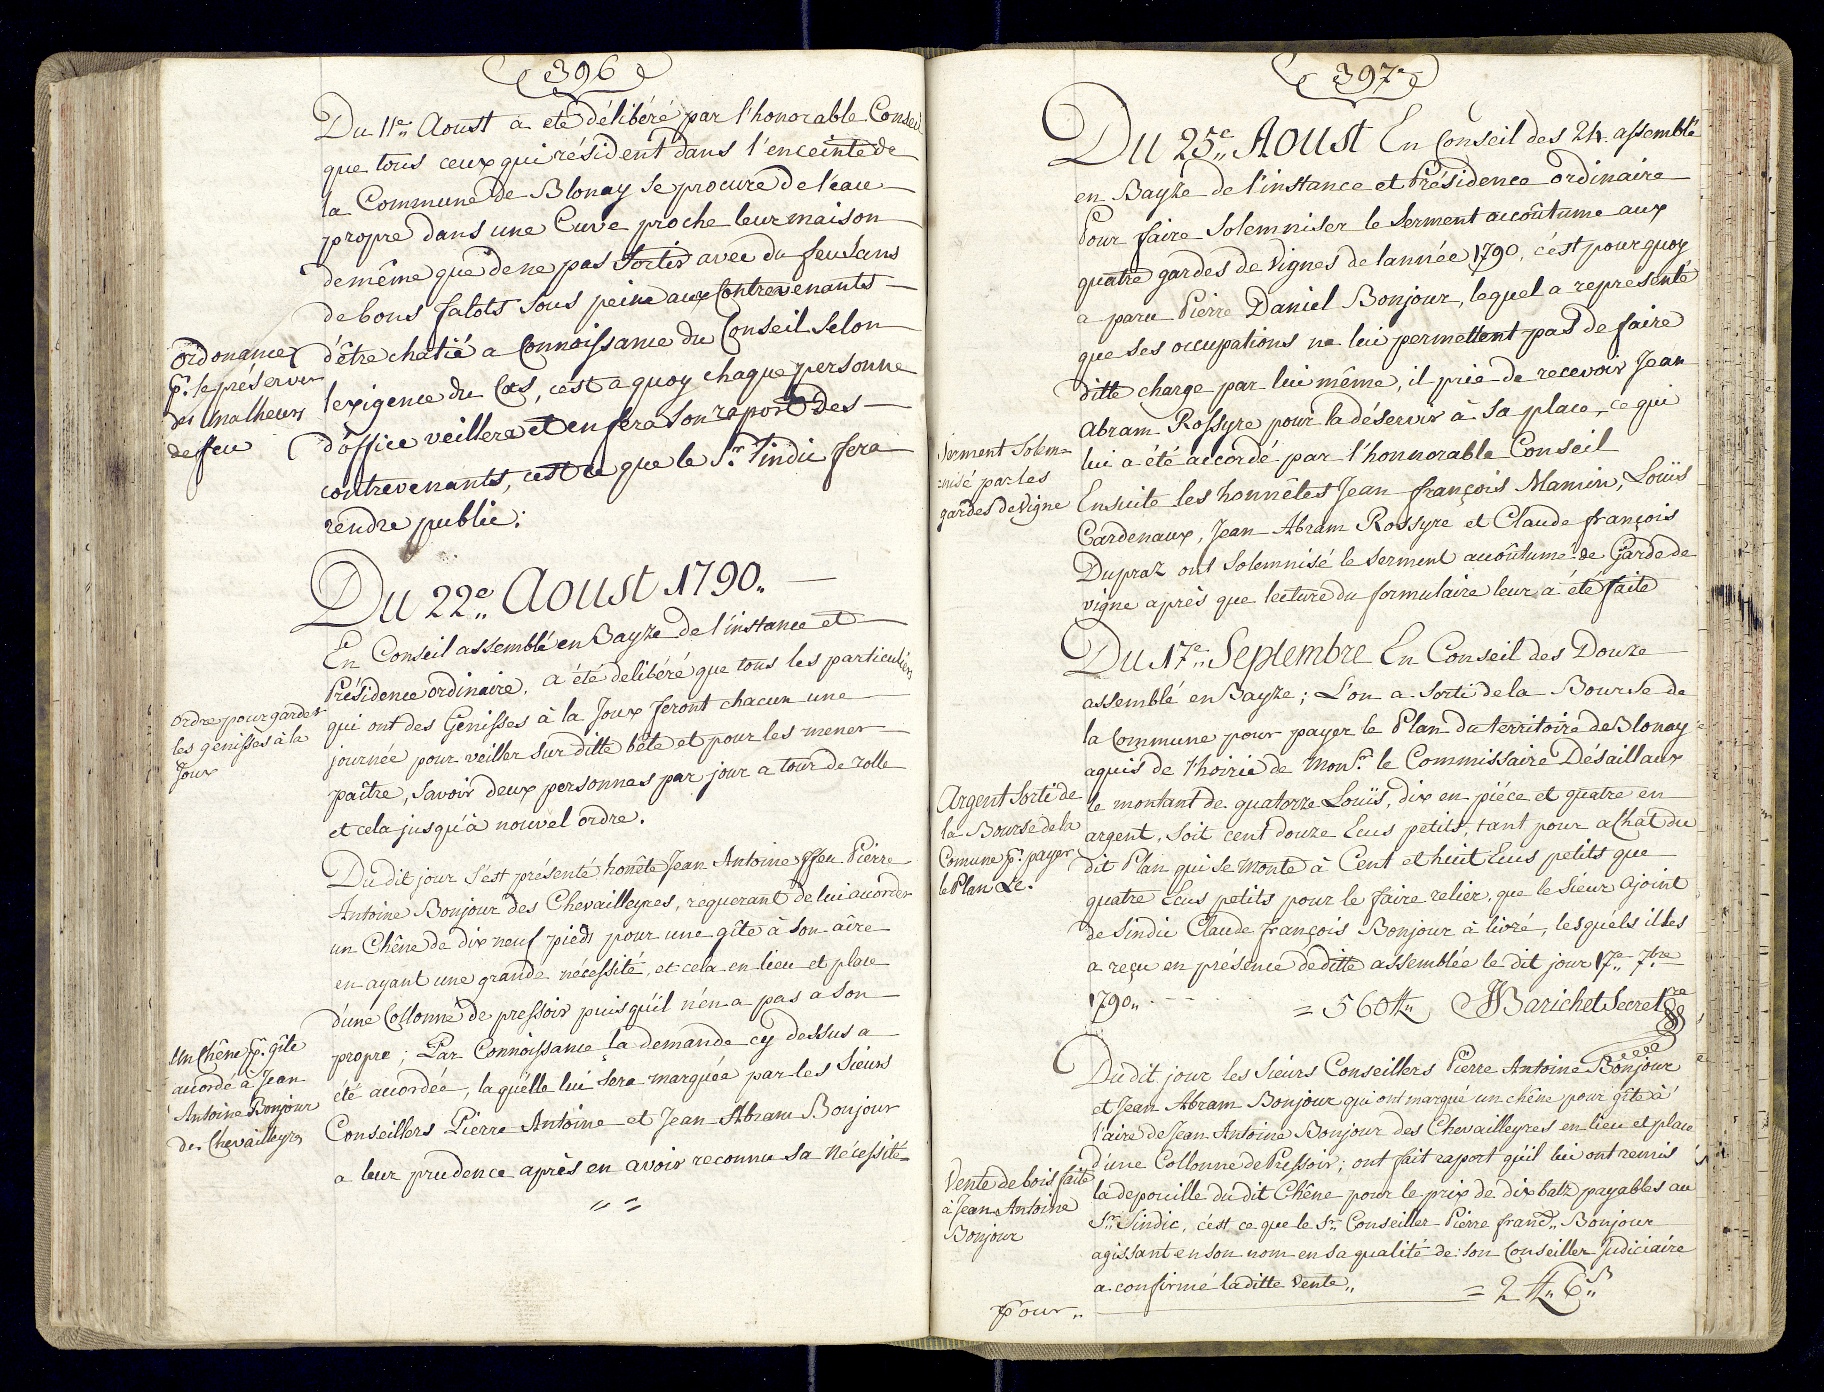 396
Du 11e„ Aoust a été délibéré par l'honorable Conseil
que tous ceux qui résident dans l'enceinte de
la Commune de Blonay se procure de l'eau
propre dans une Cuve proche leur maison
de même que de ne pas Sortir avec du feu sans
de bons falots sous peine aux Contrevenants
d'être chatié a Connoissance du Conseil Selon
l'exigence du Cas, c'est a quoy chaque personne
d'office veillera et en fera Son raport des
contrevenants, c'est ce que le Sr. Sindic fera
rendre public.
ordonance
pr. se préserver
des malheurs
de feu
Du 22e„ Aoust 1790„
En Conseil assemblé en Bayze de l'instance et
Présidence ordinaire, a été delibéré que tous les particuliers
qui ont des Génisses à la Joux feront chacun une
journée pour veiller sur ditte bête et pour les mener
paître, Savoir deux personnes par jour a tour de rolle
et cela jusqu'à nouvel ordre.
ordre pour garder
les genisses à la
Joux
Du dit jour s'est présenté honête Jean Antoine ffeu Pierre
Antoine Bonjour des Chevailleyres, requerant de lui accorder
un Chêne de dix neuf pieds pour une gîte à Son aire
en ayant une grande nécessité, et cela en lieu et place
d'une Collonne de pressoir puisqu'il n'en a pas a Son
propre ; Par Connoissance la demande cy dessus a
été accordée, laquelle lui sera marquée par les Sieurs
Conseillers Pierre Antoine et Jean Abram Bonjour
a leur prudence après en avoir reconnu sa nécessité
Un Chêne pr. gîte
accordé à Jean
Antoine Bonjour
des Chevailleyres
397
Du 25e„ Aoust En Conseil des 24 assemblé
en Bayze de l'instance et Présidence ordinaire
Pour faire Solemniser le Serment accoûtume aux
quatre gardes de Vignes de lannée 1790, c'est pourquoy
a paru Pierre Daniel Bonjour, lequel a representé
que ses occupations ne lui permettent pas de faire
ditte charge par lui même, il prie de recevoir Jean
Abram Rossyre pour la déservir à sa place, ce qui
lui a été accordé par l'honnorable Conseil
Ensuite les honnêtes Jean françois Mamin, Louïs
Cardenaux, Jean Abram Rossyre et Claude françois
Dupraz ont Solemnisé le Serment accoûtumé de Garde de
vigne après que lecture du formulaire leur a été faite
Serment Solem-
-nisé par les
gardes de Vigne
Du 17e„ Septembre En Conseil des Douze
assemblé en Bayze ; L'on a Sorti de la Bourse de
la Commune pour payer le Plan du territoire de Blonay
aquis de l'hoirie de Monsr. le Commissaire Désaillaux
le montant de quatorze Louïs, dix en piéce et quatre en
argent, Soit cent douze Ecus petits, tant pour achat du
dit Plan qui se monte à Cent et huit Ecus petits que
quatre Ecus petits pour le faire relier, que le Sieur Ajoint
de Sindic Claude françois Bonjour à livré, lesquels il les
a reçu en présence de ditte assemblée le dit jour 17e„ 7bre
1790„ = 560 ₶„ Barichet Secretre
Argent Sorti de
la Bourse de la
Comune pr. payer
le Plan &c.
Du dit jour les Sieurs Conseillers Pierre Antoine Bonjour
et Jean Abram Bonjour qui ont marqué un chêne pour gîte à
l'aire de Jean Antoine Bonjour des Chevailleyres en lieu et place
d'une Collonne de Pressoir ; ont fait raport qu'il lui ont remis
la depouille du dit Chêne pour le prix de dix batz payables au
Sr. Sindic, c'est ce que le Sr. Conseiller Pierre franç„ Bonjour
agissant en son nom en sa qualité de son Conseiller Judiciaire
a confirmé la ditte Vente„ = 2 ₶„ 6 ß„
Vente de bois faite
à Jean Antoine
Bonjour
Pour„